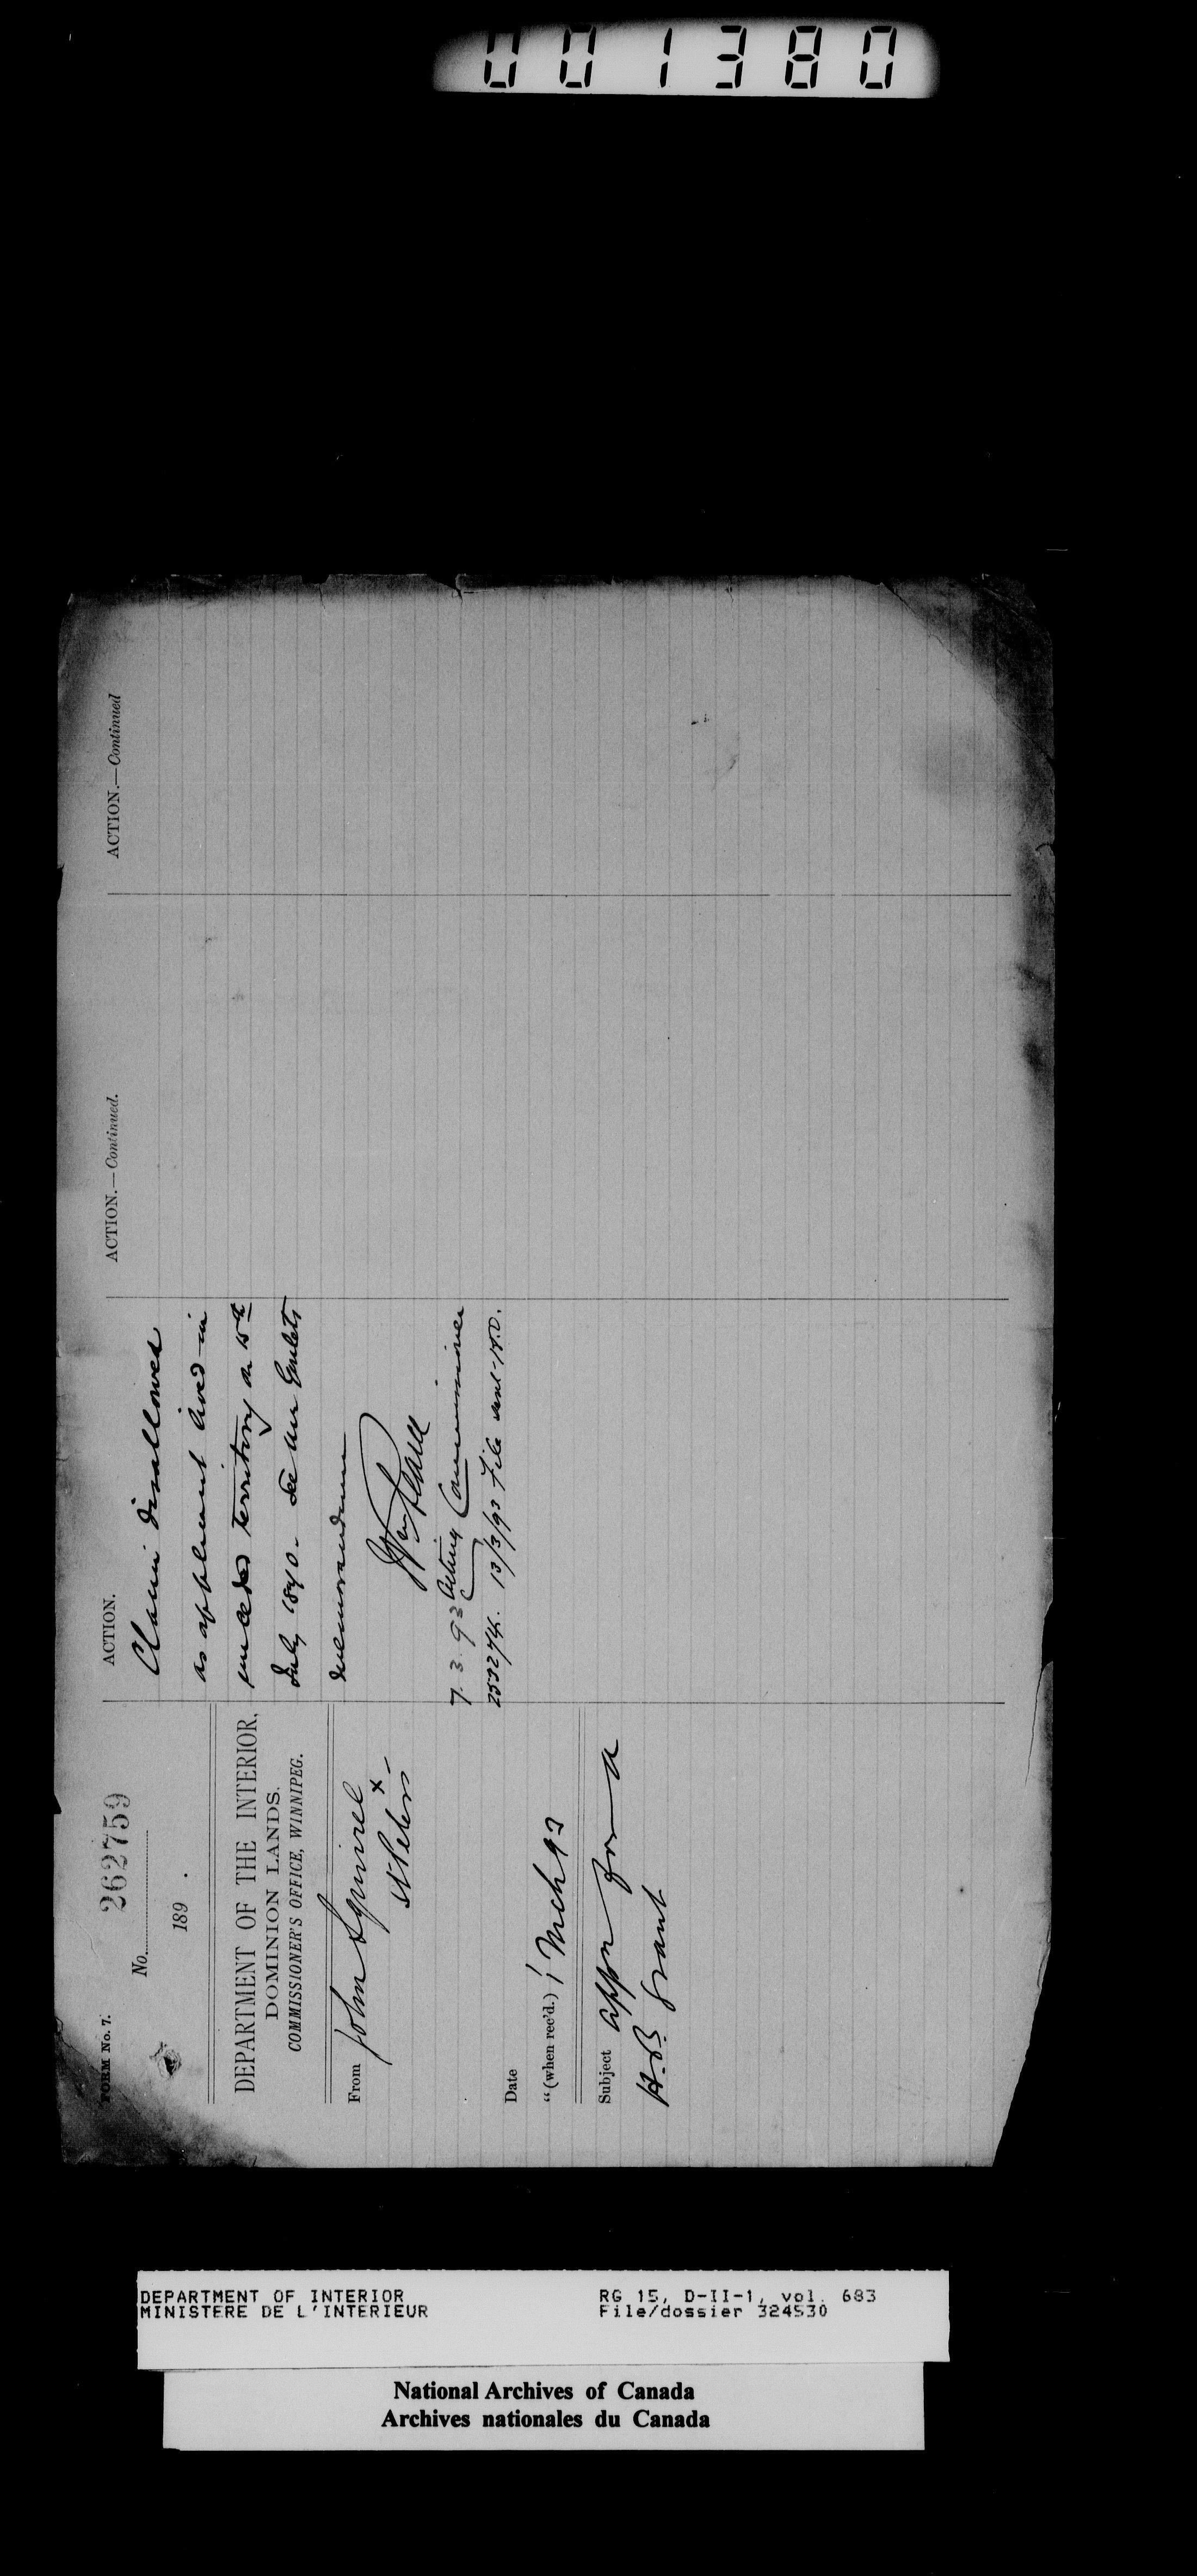 001380
FORM No. 7.
No. 262759
189 .
DEPARTMENT OF THE INTERIOR,
DOMINION LANDS.
COMMISSIONER'S OFFICE, WINNIPEG.
From John Squirrel
St Peters
Date
" (when rec'd.) 1 Mch 93
Subject appn for a
H.B. Grant
ACTION.
Claim disallowed
as applicant lived in
unceded territory on 15th
July 1870. See Mr Goulets
memorandum
Wm Pearce
7.3.93 Acting Commissioner
13/3/93 File
ACTION.—Continued.
ACTION.—Continued
DEPARTMENT OF INTERIOR
MINISTERE DE L'INTERIEUR
RG 15, D-II-1, vol. 683
File/dossier 324530
National Archives of Canada
Archives nationales du Canada